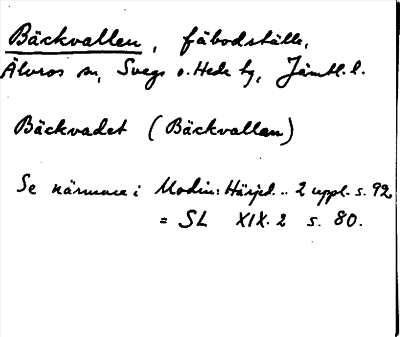 Bäckvallen, fäbodställe,
Älvros sn, Svegs o. Hede tg, Jämtl. l.
Bäckvadet (Bäckvallan)
Se närmare i Modin: Härjed... 2 uppl. s. 92
= SL XIX. 2 s. 80.